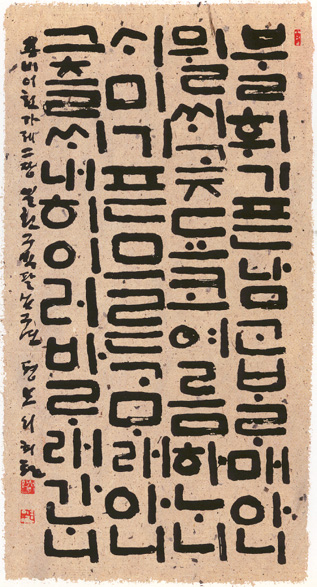 불휘기픈남ᄀᆞᆫᄇᆞᄅᆞ매아니
뮐ᄊᆡ곶됴코여름하ᄂᆞ니
ᄉᆡ미기픈므른ᄀᆞᄆᆞ래아니
그츨ᄊᆡ내히이러바ᄅᆞ래가ᄂᆞ니
룡비어천가제二장 일천구백팔십구년 평보 서희환